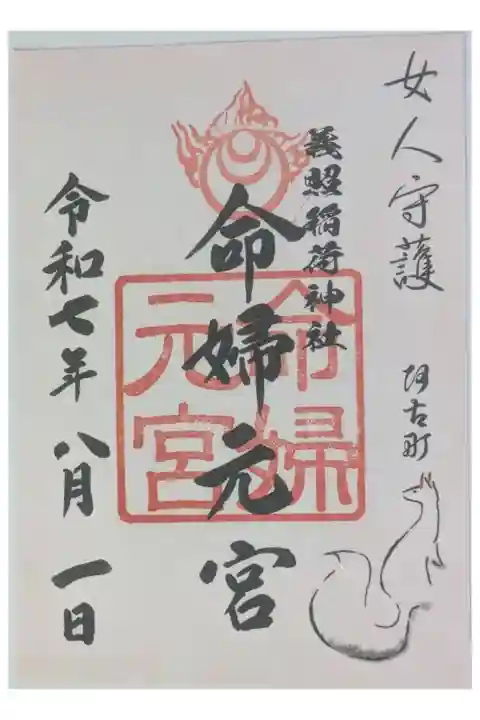 女人守護
阿古町
義照稲荷神社
命婦元宮
命婦
元宮
令和七年八月一日